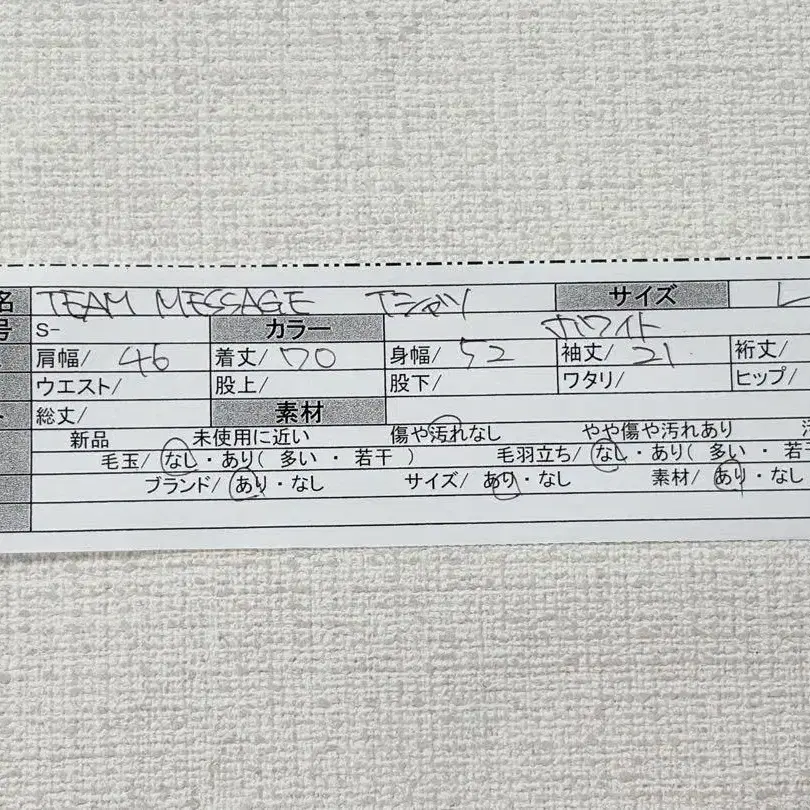 名 TEAM MESSAGE Tシャツ サイズ L
号 S- カラー ホワイト
肩幅/ 46 着丈/ 70 身幅/ 52 袖丈/ 21 裄丈/
ウエスト/ 股上/ 股下/ ワタリ/ ヒップ/
総丈/ 素材
新品 未使用に近い 傷や汚れなし やや傷や汚れあり
毛玉/ なし・あり( 多い ・ 若干 ) 毛羽立ち/ なし・あり( 多い ・ 若干
ブランド/ あり・なし サイズ/ あり・なし 素材/ あり・なし